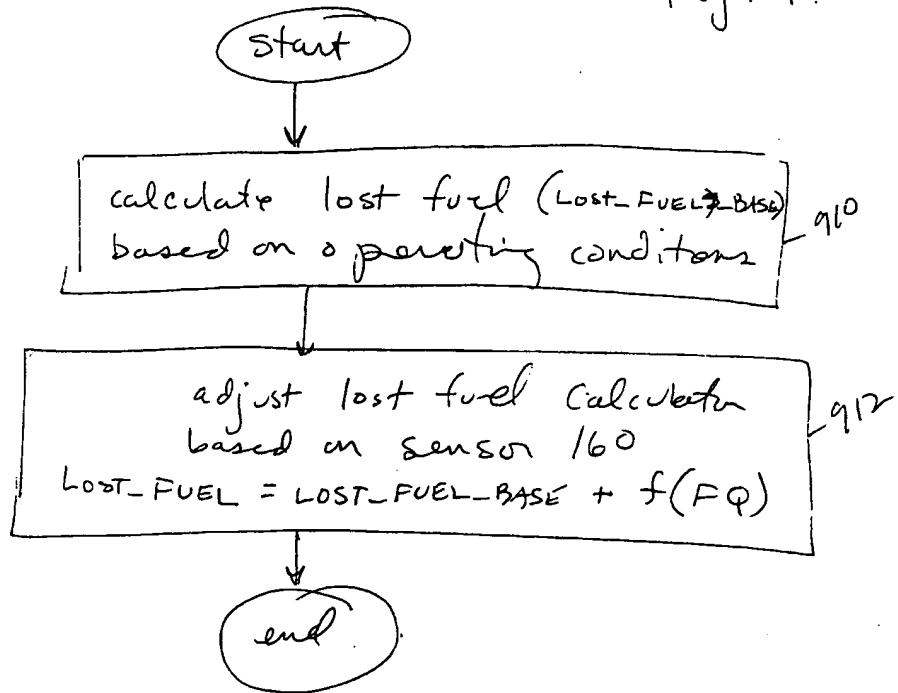 start
calculate lost fuel (LOST_FUEL_BASE)
based on operating conditions
910
adjust lost fuel Calculation
based on sensor 160
912
LOST_FUEL = LOST_FUEL_BASE + f(FQ)
end